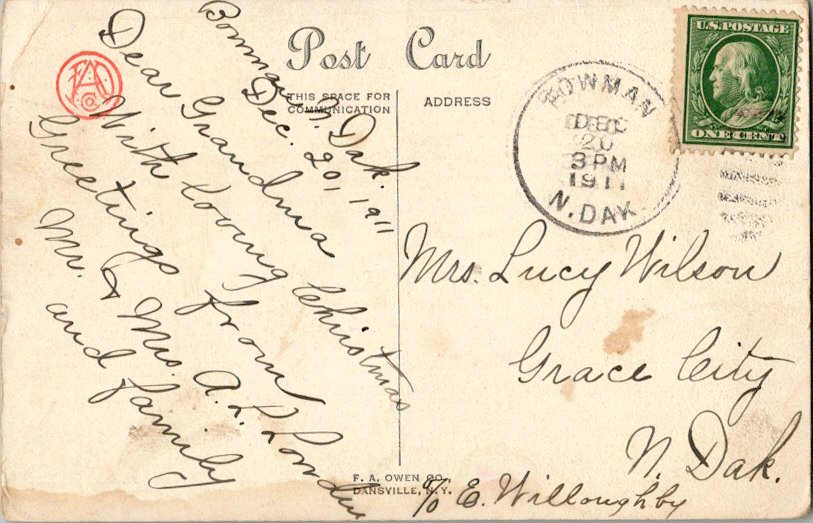 Post Card
THIS SPACE FOR
COMMUNICATION
ADDRESS
FAO
CO.
U.S. POSTAGE
ONE CENT
BOWMAN
DEC
20
3 PM
1911
N. DAK
Bowman N. Dak.
Dec. 20, 1911
Dear Grandma
With Loving Christmas
Greetings from
Mr. & Mrs. A. L.
and family
Mrs. Lucy Wilson
Grace City
N. Dak.
c/o E. Willoughby
F. A. OWEN CO.,
DANSVILLE, N.Y.